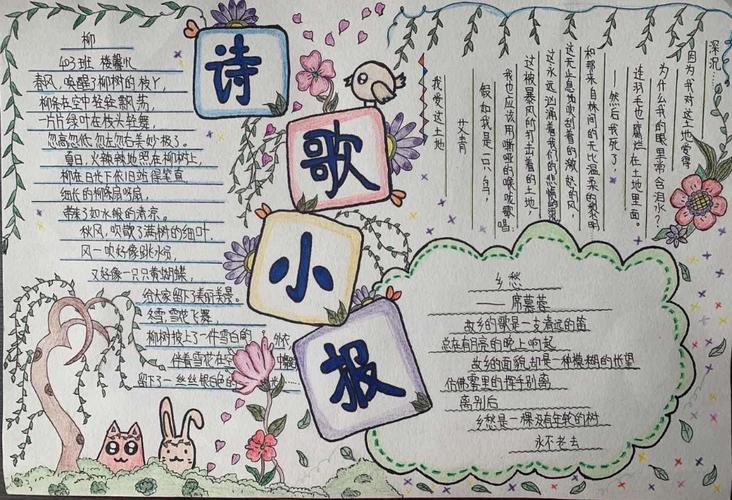 诗
歌
小
报
柳
403班
春风,唤醒了柳树的枝丫,
柳条在空中轻轻飘荡,
一片片绿叶在枝头轻舞,
忽高忽低,忽左忽右美妙极了。
夏日,火辣辣地照在柳树上,
柳在日光下依旧站得笔直,
细长的柳条扇呀扇,
带来了如水般的清凉.
秋风,吹散了满树的细叶.
风一吹好像跳水
又好像一只只黄蝴蝶,
给大家留下了美丽美景.
冬雪,雪花飞舞
柳树披上了一件雪白的 外衣
伴着雪花在空
留下了一丝丝银白色的
我爱这土地
艾青
假如我是一只鸟,
我也应该用嘶哑的喉咙歌唱
这被暴风所打击着的土地,
这永远汹涌着我们的悲愤的河
这无止息地吹刮着的激怒的风,
和那来自林间的无比温柔的黎明
然后我死了
连羽毛也腐烂在土地里面。
为什么我的眼里常含泪水?
因为我对这土地爱得
深沉……
乡愁
——席慕蓉
故乡的歌是一支清远的笛
总在有月亮的晚上响起
故乡的面貌却是一种模糊的怅望
仿佛雾里的挥手别离
离别后
乡愁是一棵没有年轮的树
永不老去